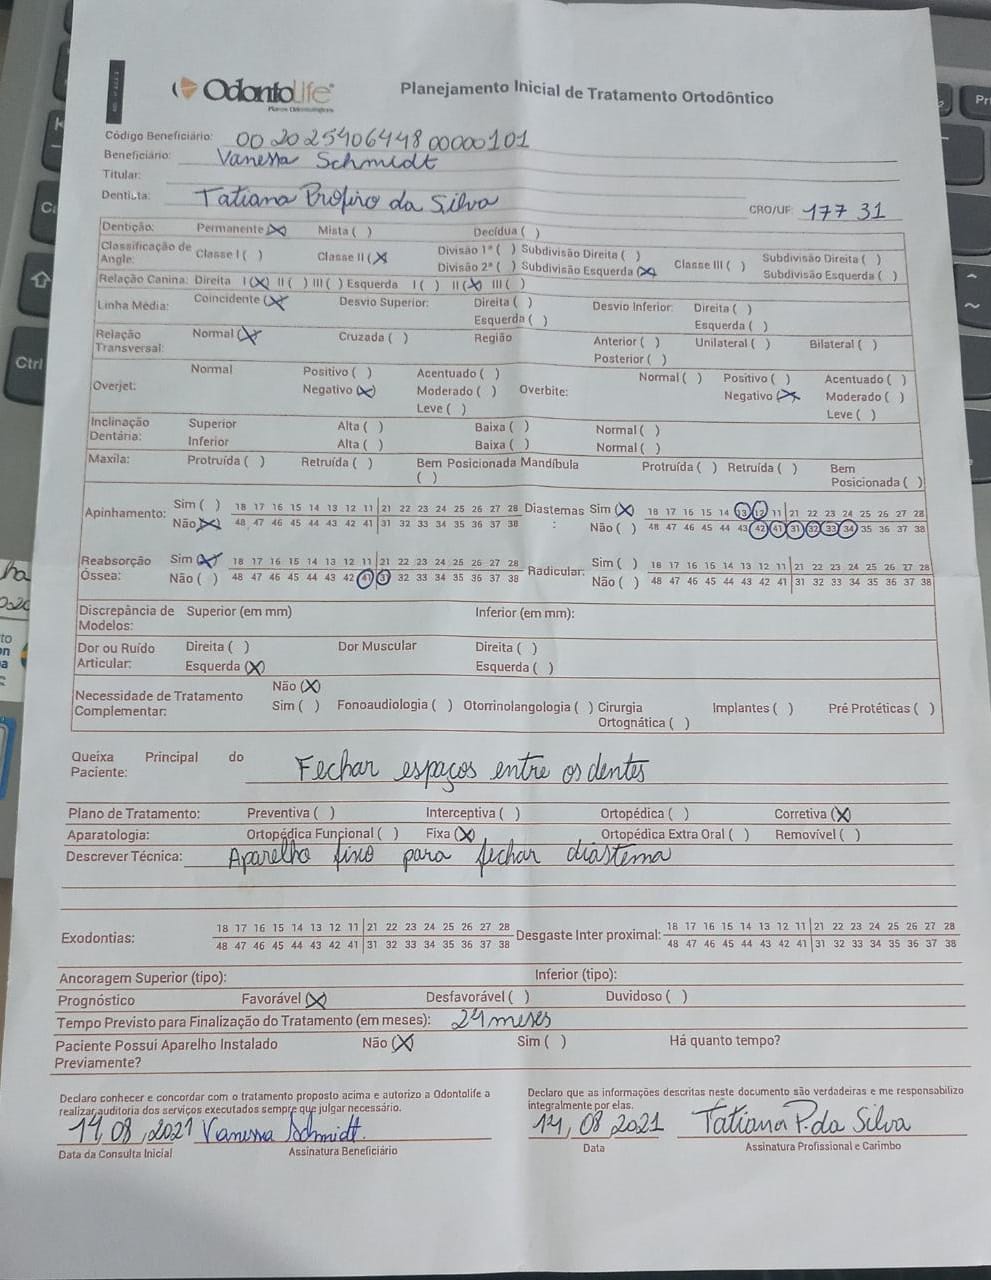 Odontolife
Planos Odontológicos
Planejamento Inicial de Tratamento Ortodôntico
Código Beneficiário: 00 202540644800000101
Beneficiário: Vanessa Schmidt
Titular:
Dentista: Tatiana Profiro da Silva CRO/UF: 177 31
Dentição: Permanente (X) Mista ( ) Decídua ( )
Classificação de Angle: Classe I ( ) Classe II (X) Divisão 1ª ( ) Subdivisão Direita ( ) Classe III ( ) Subdivisão Direita ( )
Divisão 2ª ( ) Subdivisão Esquerda (X) Subdivisão Esquerda ( )
Relação Canina: Direita I (X) II ( ) III ( ) Esquerda I ( ) II (X) III ( )
Linha Média: Coincidente (X) Desvio Superior: Direita ( ) Desvio Inferior: Direita ( )
Esquerda ( ) Esquerda ( )
Relação Transversal: Normal (X) Cruzada ( ) Região Anterior ( ) Unilateral ( ) Bilateral ( )
Posterior ( )
Overjet: Normal Positivo ( ) Acentuado ( ) Overbite: Normal ( ) Positivo ( ) Acentuado ( )
Negativo (X) Moderado ( ) Negativo (X) Moderado ( )
Leve ( ) Leve ( )
Inclinação Dentária: Superior Alta ( ) Baixa ( ) Normal ( )
Inferior Alta ( ) Baixa ( ) Normal ( )
Maxila: Protruída ( ) Retruída ( ) Bem Posicionada ( ) Mandíbula Protruída ( ) Retruída ( ) Bem Posicionada ( )
Apinhamento: Sim ( ) 18 17 16 15 14 13 12 11 21 22 23 24 25 26 27 28 Diastemas : Sim (X) 18 17 16 15 14 13 12 11 21 22 23 24 25 26 27 28
Não (X) 48 47 46 45 44 43 42 41 31 32 33 34 35 36 37 38 Não ( ) 48 47 46 45 44 43 42 41 31 32 33 34 35 36 37 38
Reabsorção Óssea: Sim (X) 18 17 16 15 14 13 12 11 21 22 23 24 25 26 27 28 Radicular: Sim ( ) 18 17 16 15 14 13 12 11 21 22 23 24 25 26 27 28
Não ( ) 48 47 46 45 44 43 42 41 31 32 33 34 35 36 37 38 Não ( ) 48 47 46 45 44 43 42 41 31 32 33 34 35 36 37 38
Discrepância de Modelos: Superior (em mm) Inferior (em mm):
Dor ou Ruído Articular: Direita ( ) Dor Muscular Direita ( )
Esquerda (X) Esquerda ( )
Necessidade de Tratamento Complementar: Não (X)
Sim ( ) Fonoaudiologia ( ) Otorrinolangologia ( ) Cirurgia Ortognática ( ) Implantes ( ) Pré Protéticas ( )
Queixa Principal do Paciente: Fechar espaços entre os dentes
Plano de Tratamento: Preventiva ( ) Interceptiva ( ) Ortopédica ( ) Corretiva (X)
Aparatologia: Ortopédica Funcional ( ) Fixa (X) Ortopédica Extra Oral ( ) Removível ( )
Descrever Técnica: Aparelho fixo para fechar diastema
Exodontias: 18 17 16 15 14 13 12 11 21 22 23 24 25 26 27 28 Desgaste Inter proximal: 18 17 16 15 14 13 12 11 21 22 23 24 25 26 27 28
48 47 46 45 44 43 42 41 31 32 33 34 35 36 37 38 48 47 46 45 44 43 42 41 31 32 33 34 35 36 37 38
Ancoragem Superior (tipo): Inferior (tipo):
Prognóstico Favorável (X) Desfavorável ( ) Duvidoso ( )
Tempo Previsto para Finalização do Tratamento (em meses): 24 meses
Paciente Possui Aparelho Instalado Previamente? Não (X) Sim ( ) Há quanto tempo?
Declaro conhecer e concordar com o tratamento proposto acima e autorizo a Odontolife a
realizar auditoria dos serviços executados sempre que julgar necessário.
Declaro que as informações descritas neste documento são verdadeiras e me responsabilizo
integralmente por elas.
14,08,2021 Vanessa Schmidt. 14,08,2021 Tatiana P. da Silva
Data da Consulta Inicial Assinatura Beneficiário Data Assinatura Profissional e Carimbo